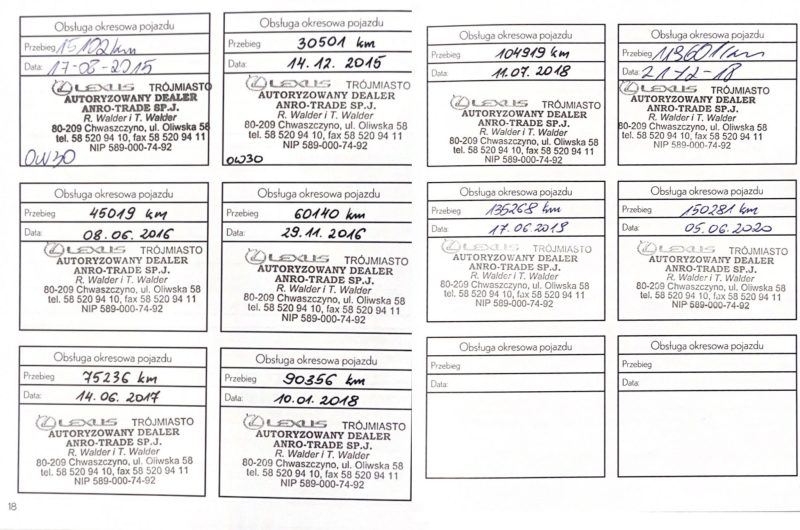 Obsługa okresowa pojazdu
Przebieg 15102 km
Data: 17-08-2015
LEXUS TRÓJMIASTO
AUTORYZOWANY DEALER
ANRO-TRADE SP.J.
R. Walder i T. Walder
80-209 Chwaszczyno, ul. Oliwska 58
tel. 58 520 94 10, fax 58 520 94 11
NIP 589-000-74-92
0W30
Obsługa okresowa pojazdu
Przebieg 30501 km
Data: 14.12.2015
LEXUS TRÓJMIASTO
AUTORYZOWANY DEALER
ANRO-TRADE SP.J.
R. Walder i T. Walder
80-209 Chwaszczyno, ul. Oliwska 58
tel. 58 520 94 10, fax 58 520 94 11
NIP 589-000-74-92
0W30
Obsługa okresowa pojazdu
Przebieg 104919 km
Data: 11.07.2018
LEXUS TRÓJMIASTO
AUTORYZOWANY DEALER
ANRO-TRADE SP.J.
R. Walder i T. Walder
80-209 Chwaszczyno, ul. Oliwska 58
tel. 58 520 94 10, fax 58 520 94 11
NIP 589-000-74-92
Obsługa okresowa pojazdu
Przebieg 113601 km
Data: 21-12-18
LEXUS TRÓJMIASTO
AUTORYZOWANY DEALER
ANRO-TRADE SP.J.
R. Walder i T. Walder
80-209 Chwaszczyno, ul. Oliwska 58
tel. 58 520 94 10, fax 58 520 94 11
NIP 589-000-74-92
Obsługa okresowa pojazdu
Przebieg 45019 km
Data: 08.06.2016
LEXUS TRÓJMIASTO
AUTORYZOWANY DEALER
ANRO-TRADE SP.J.
R. Walder i T. Walder
80-209 Chwaszczyno, ul. Oliwska 58
tel. 58 520 94 10, fax 58 520 94 11
NIP 589-000-74-92
Obsługa okresowa pojazdu
Przebieg 60140 km
Data: 29.11.2016
LEXUS TRÓJMIASTO
AUTORYZOWANY DEALER
ANRO-TRADE SP.J.
R. Walder i T. Walder
80-209 Chwaszczyno, ul. Oliwska 58
tel. 58 520 94 10, fax 58 520 94 11
NIP 589-000-74-92
Obsługa okresowa pojazdu
Przebieg 135268 km
Data: 17.06.2019
LEXUS TRÓJMIASTO
AUTORYZOWANY DEALER
ANRO-TRADE SP.J.
R. Walder i T. Walder
80-209 Chwaszczyno, ul. Oliwska 58
tel. 58 520 94 10, fax 58 520 94 11
NIP 589-000-74-92
Obsługa okresowa pojazdu
Przebieg 150281 km
Data: 05.06.2020
LEXUS TRÓJMIASTO
AUTORYZOWANY DEALER
ANRO-TRADE SP.J.
R. Walder i T. Walder
80-209 Chwaszczyno, ul. Oliwska 58
tel. 58 520 94 10, fax 58 520 94 11
NIP 589-000-74-92
Obsługa okresowa pojazdu
Przebieg 75236 km
Data: 14.06.2017
LEXUS TRÓJMIASTO
AUTORYZOWANY DEALER
ANRO-TRADE SP.J.
R. Walder i T. Walder
80-209 Chwaszczyno, ul. Oliwska 58
tel. 58 520 94 10, fax 58 520 94 11
NIP 589-000-74-92
Obsługa okresowa pojazdu
Przebieg 90356 km
Data: 10.01.2018
LEXUS TRÓJMIASTO
AUTORYZOWANY DEALER
ANRO-TRADE SP.J.
R. Walder i T. Walder
80-209 Chwaszczyno, ul. Oliwska 58
tel. 58 520 94 10, fax 58 520 94 11
NIP 589-000-74-92
Obsługa okresowa pojazdu
Przebieg
Data:
Obsługa okresowa pojazdu
Przebieg
Data:
18